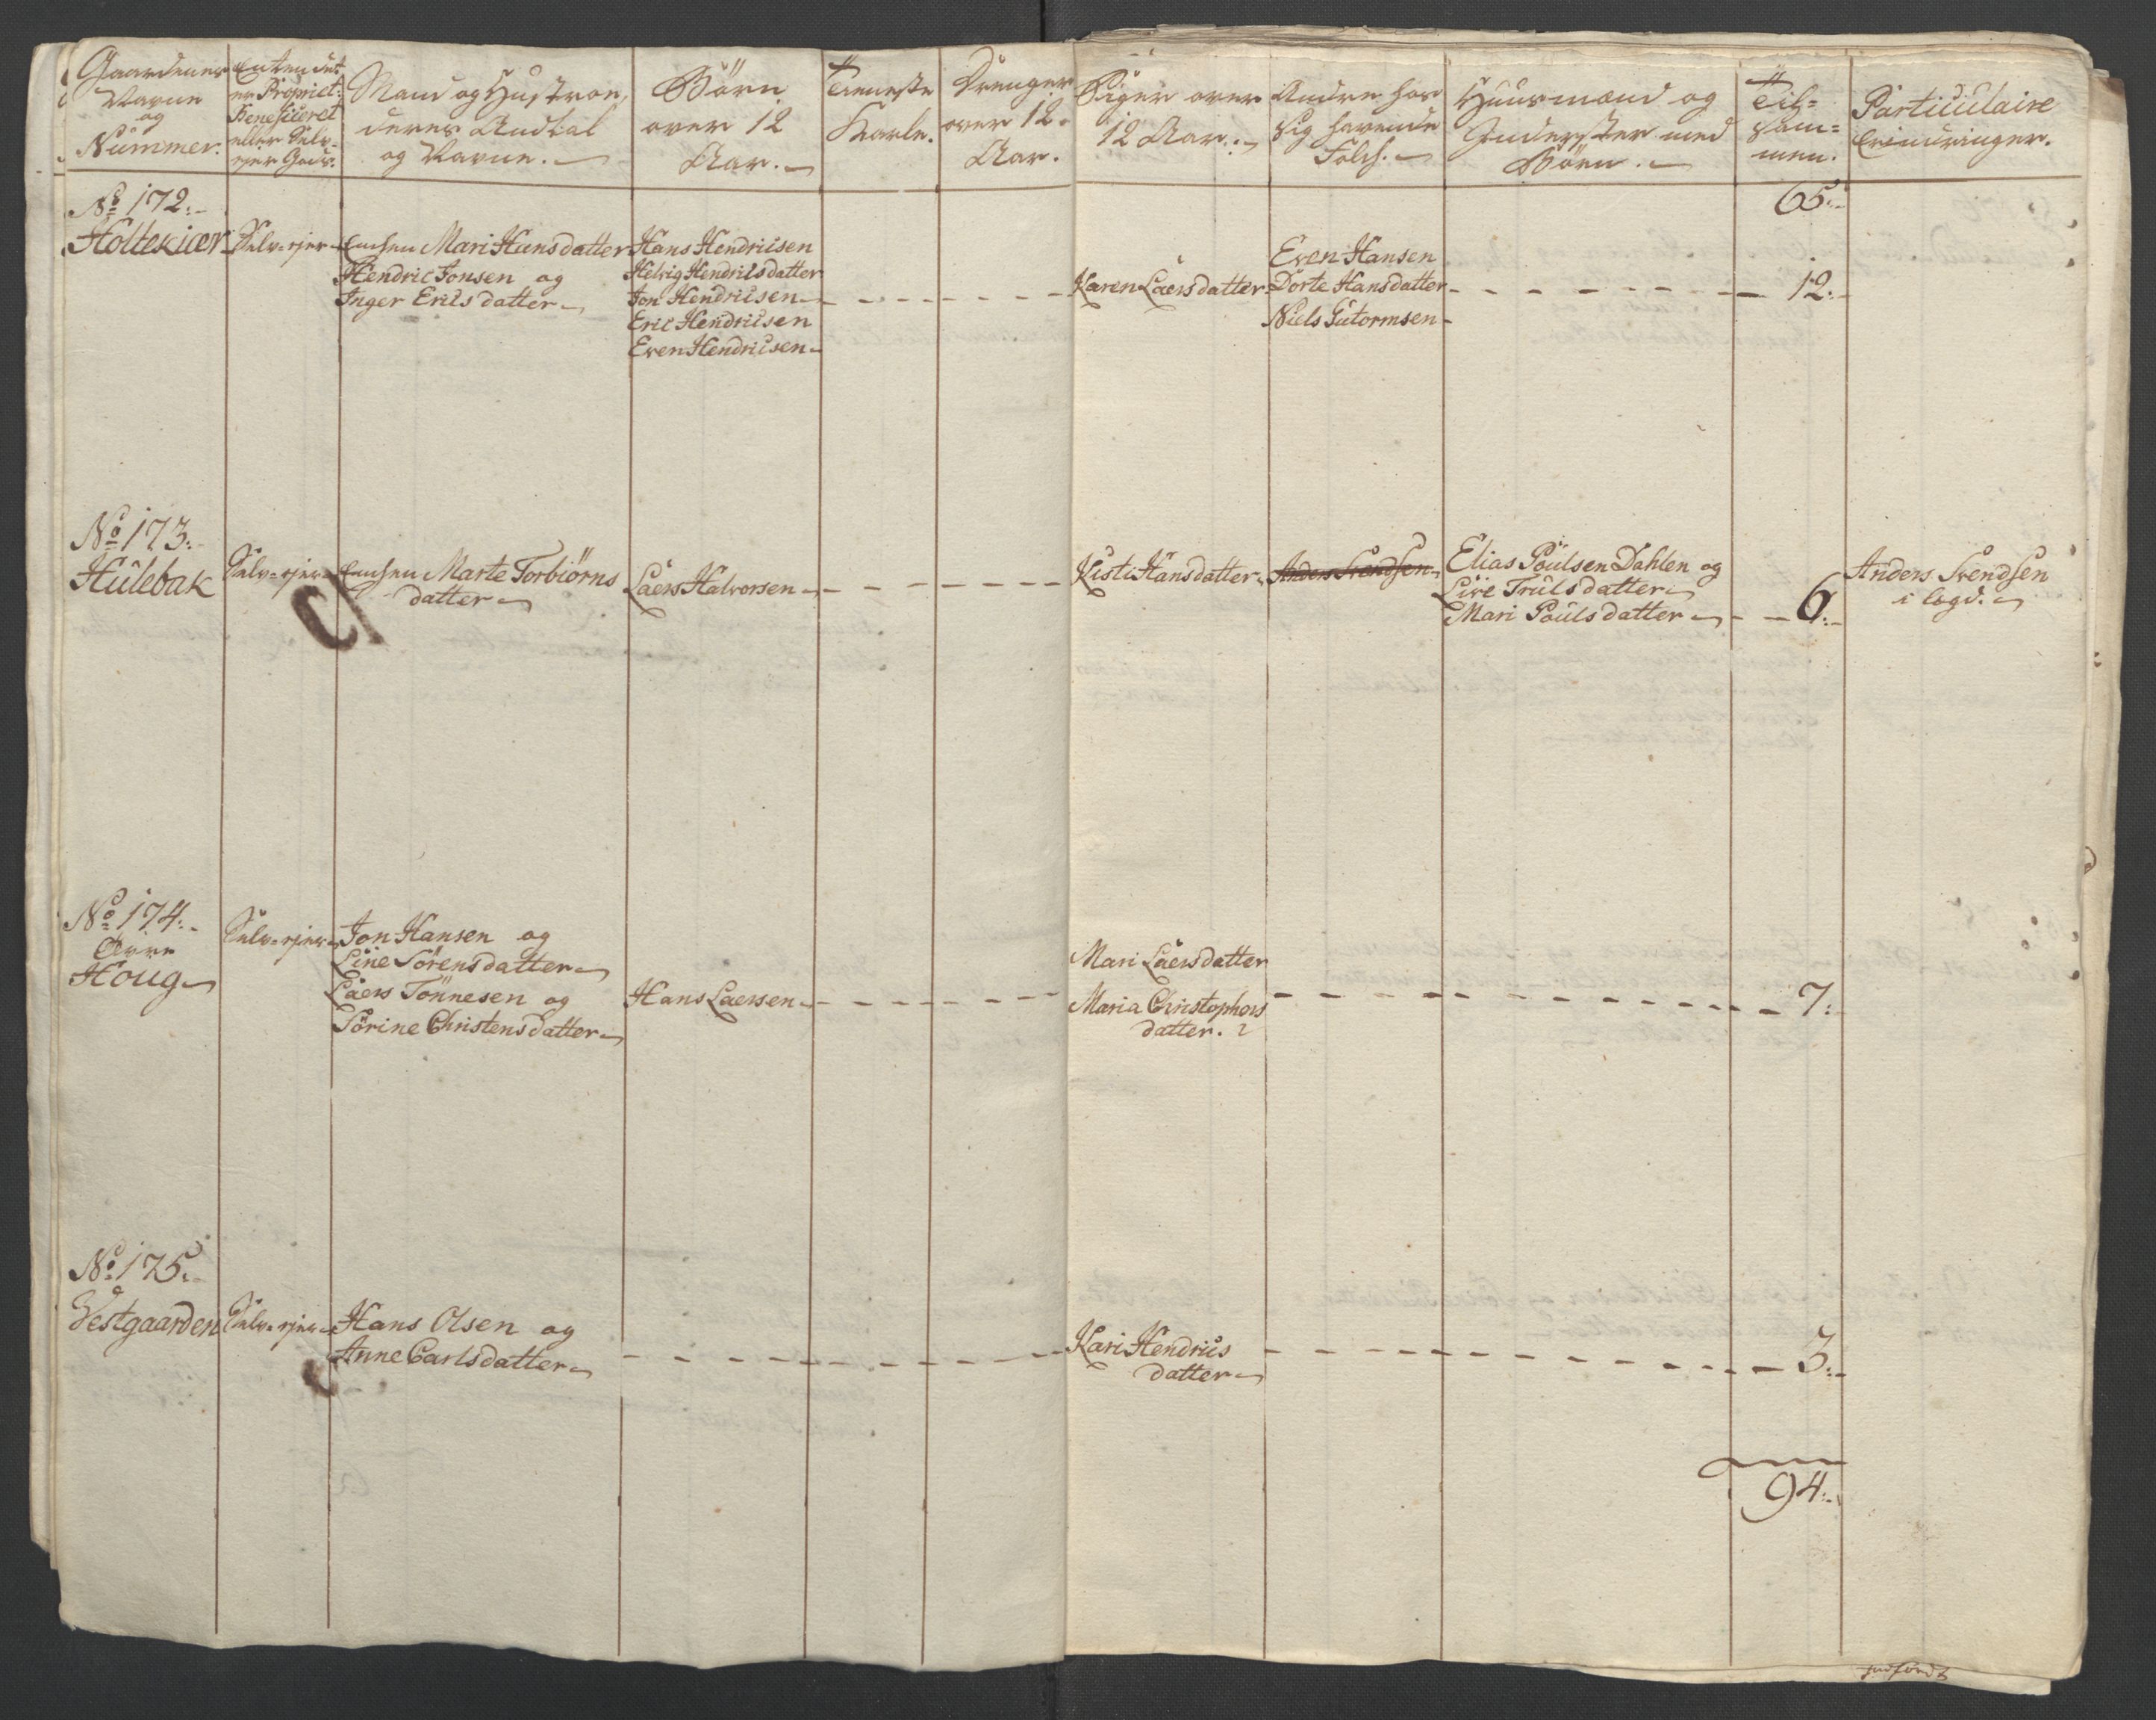 Gaardenes
Navne
og
Nummer.
Enten det
er Propriet:
Beneficeret
eller Selv-
ejer Gods.
Mand og Hustroe,
deres Andtal
og Navne.
Börn
over 12
Aar.
Tieneste
Karle.
Drenger
over 12.
Aar.
Piger over
12 Aar.
Andre hos
sig havende
Folch.
Huusmænd og
Inderster med
Börn.
Til=
sam=
men.
Particulaire
Erindringer.
65.
No 172.
Holtekiær
Selv-ejer
Enchen Mari Hansdatter
Hendric Jonsen og
Inger Erics datter
Hans Hendricsen
Helvig Hendricsdatter
Jon Hendricsen
Eric Hendricsen
Even Hendricsen
Karen Laersdatter
Even Hansen
Dorte Hansdatter
Niels Gutormsen
12.
No 173.
Hulebak
Selv-ejer
Enchen Marte Torbiörns
datter
Laers Halvorsen
Kisti Hansdatter
Anders Svendsen
Elias Poulsen Dahlen og
Live Truls datter
Mari Pouls datter
6.
Anders Svendsen
i legd.
No 174.
Övre
Houg
Selv-ejer
Jon Hansen og
Line Sörens datter
Laers Tönnesen og
Sörine Christens datter
Hans Laersen
Mari Laersdatter
Maria Christophers
datter. 2
7.
No 175.
Vestgaarden
Selv-ejer
Hans Olsen og
Anne Carlsdatter
Kari Hendrics
datter
3.
94.